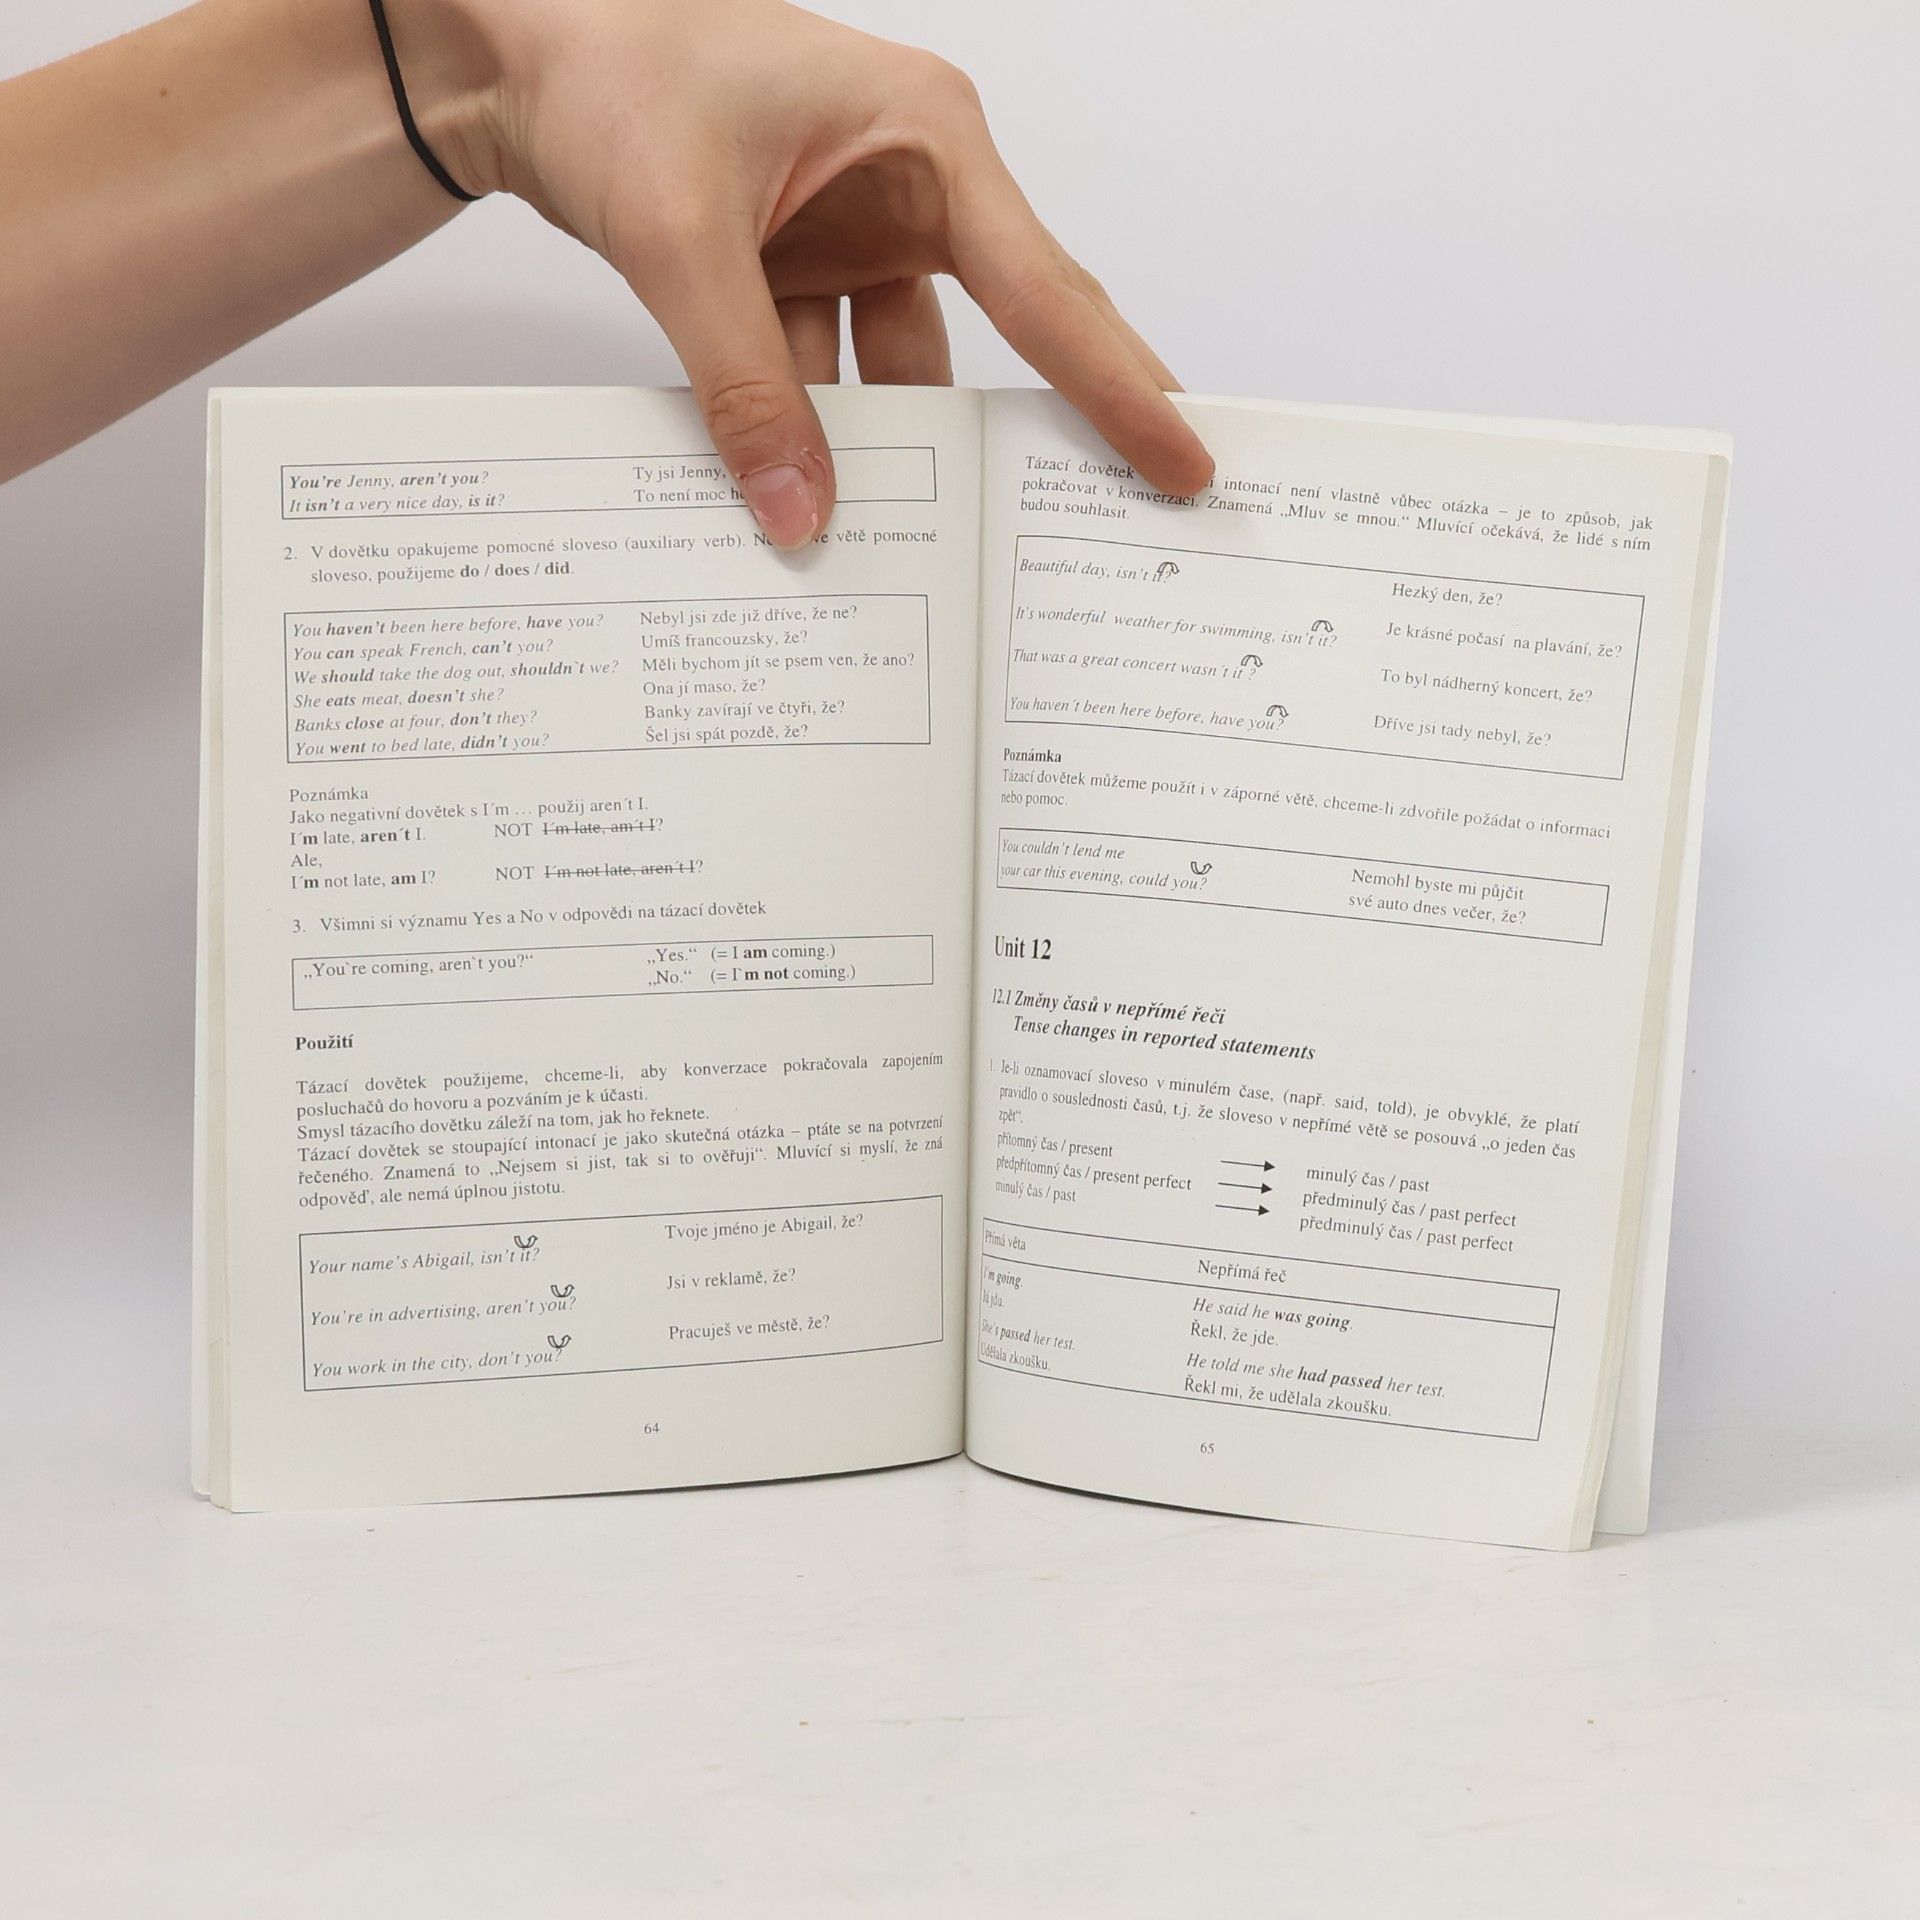 You're Jenny, aren't you? Ty jsi Jenny,
It isn't a very nice day, is it? To není moc
2. V dovětku opakujeme pomocné sloveso (auxiliary verb). větě pomocné
sloveso, použijeme do / does / did.
You haven't been here before, have you? Nebyl jsi zde již dříve, že ne?
You can speak French, can't you? Umíš francouzsky, že?
We should take the dog out, shouldn`t we? Měli bychom jít se psem ven, že ano?
She eats meat, doesn't she? Ona jí maso, že?
Banks close at four, don't they? Banky zavírají ve čtyři, že?
You went to bed late, didn't you? Šel jsi spát pozdě, že?
Poznámka
Jako negativní dovětek s I´m … použij aren´t I.
I´m late, aren´t I. NOT I´m late, am´t I?
Ale,
I´m not late, am I? NOT I´m not late, aren´t I?
3. Všimni si významu Yes a No v odpovědi na tázací dovětek
„You`re coming, aren`t you?“ „Yes.“ (= I am coming.)
„No.“ (= I`m not coming.)
Použití
Tázací dovětek použijeme, chceme-li, aby konverzace pokračovala zapojením
posluchačů do hovoru a pozváním je k účasti.
Smysl tázacího dovětku záleží na tom, jak ho řeknete.
Tázací dovětek se stoupající intonací je jako skutečná otázka – ptáte se na potvrzení
řečeného. Znamená to „Nejsem si jist, tak si to ověřuji“. Mluvící si myslí, že zná
odpověď, ale nemá úplnou jistotu.
Your name's Abigail, isn't it? Tvoje jméno je Abigail, že?
You're in advertising, aren't you? Jsi v reklamě, že?
You work in the city, don't you? Pracuješ ve městě, že?
64
Tázací dovětek intonací není vlastně vůbec otázka – je to způsob, jak
pokračovat v konverzaci. Znamená „Mluv se mnou.“ Mluvící očekává, že lidé s ním
budou souhlasit.
Beautiful day, isn't it? Hezký den, že?
It's wonderful weather for swimming, isn't it? Je krásné počasí na plavání, že?
That was a great concert wasn´t it ? To byl nádherný koncert, že?
You haven´t been here before, have you? Dříve jsi tady nebyl, že?
Poznámka
Tázací dovětek můžeme použít i v záporné větě, chceme-li zdvořile požádat o informaci
nebo pomoc.
You couldn't lend me Nemohl byste mi půjčit
your car this evening, could you? své auto dnes večer, že?
Unit 12
12.1 Změny časů v nepřímé řeči
Tense changes in reported statements
1. Je-li oznamovací sloveso v minulém čase, (např. said, told), je obvyklé, že platí
pravidlo o souslednosti časů, t.j. že sloveso v nepřímé větě se posouvá „o jeden čas
zpět“.
přítomný čas / present minulý čas / past
předpřítomný čas / present perfect předminulý čas / past perfect
minulý čas / past předminulý čas / past perfect
Přímá věta Nepřímá řeč
I'm going. He said he was going.
Já jdu. Řekl, že jde.
She's passed her test. He told me she had passed her test.
Udělala zkoušku. Řekl mi, že udělala zkoušku.
65